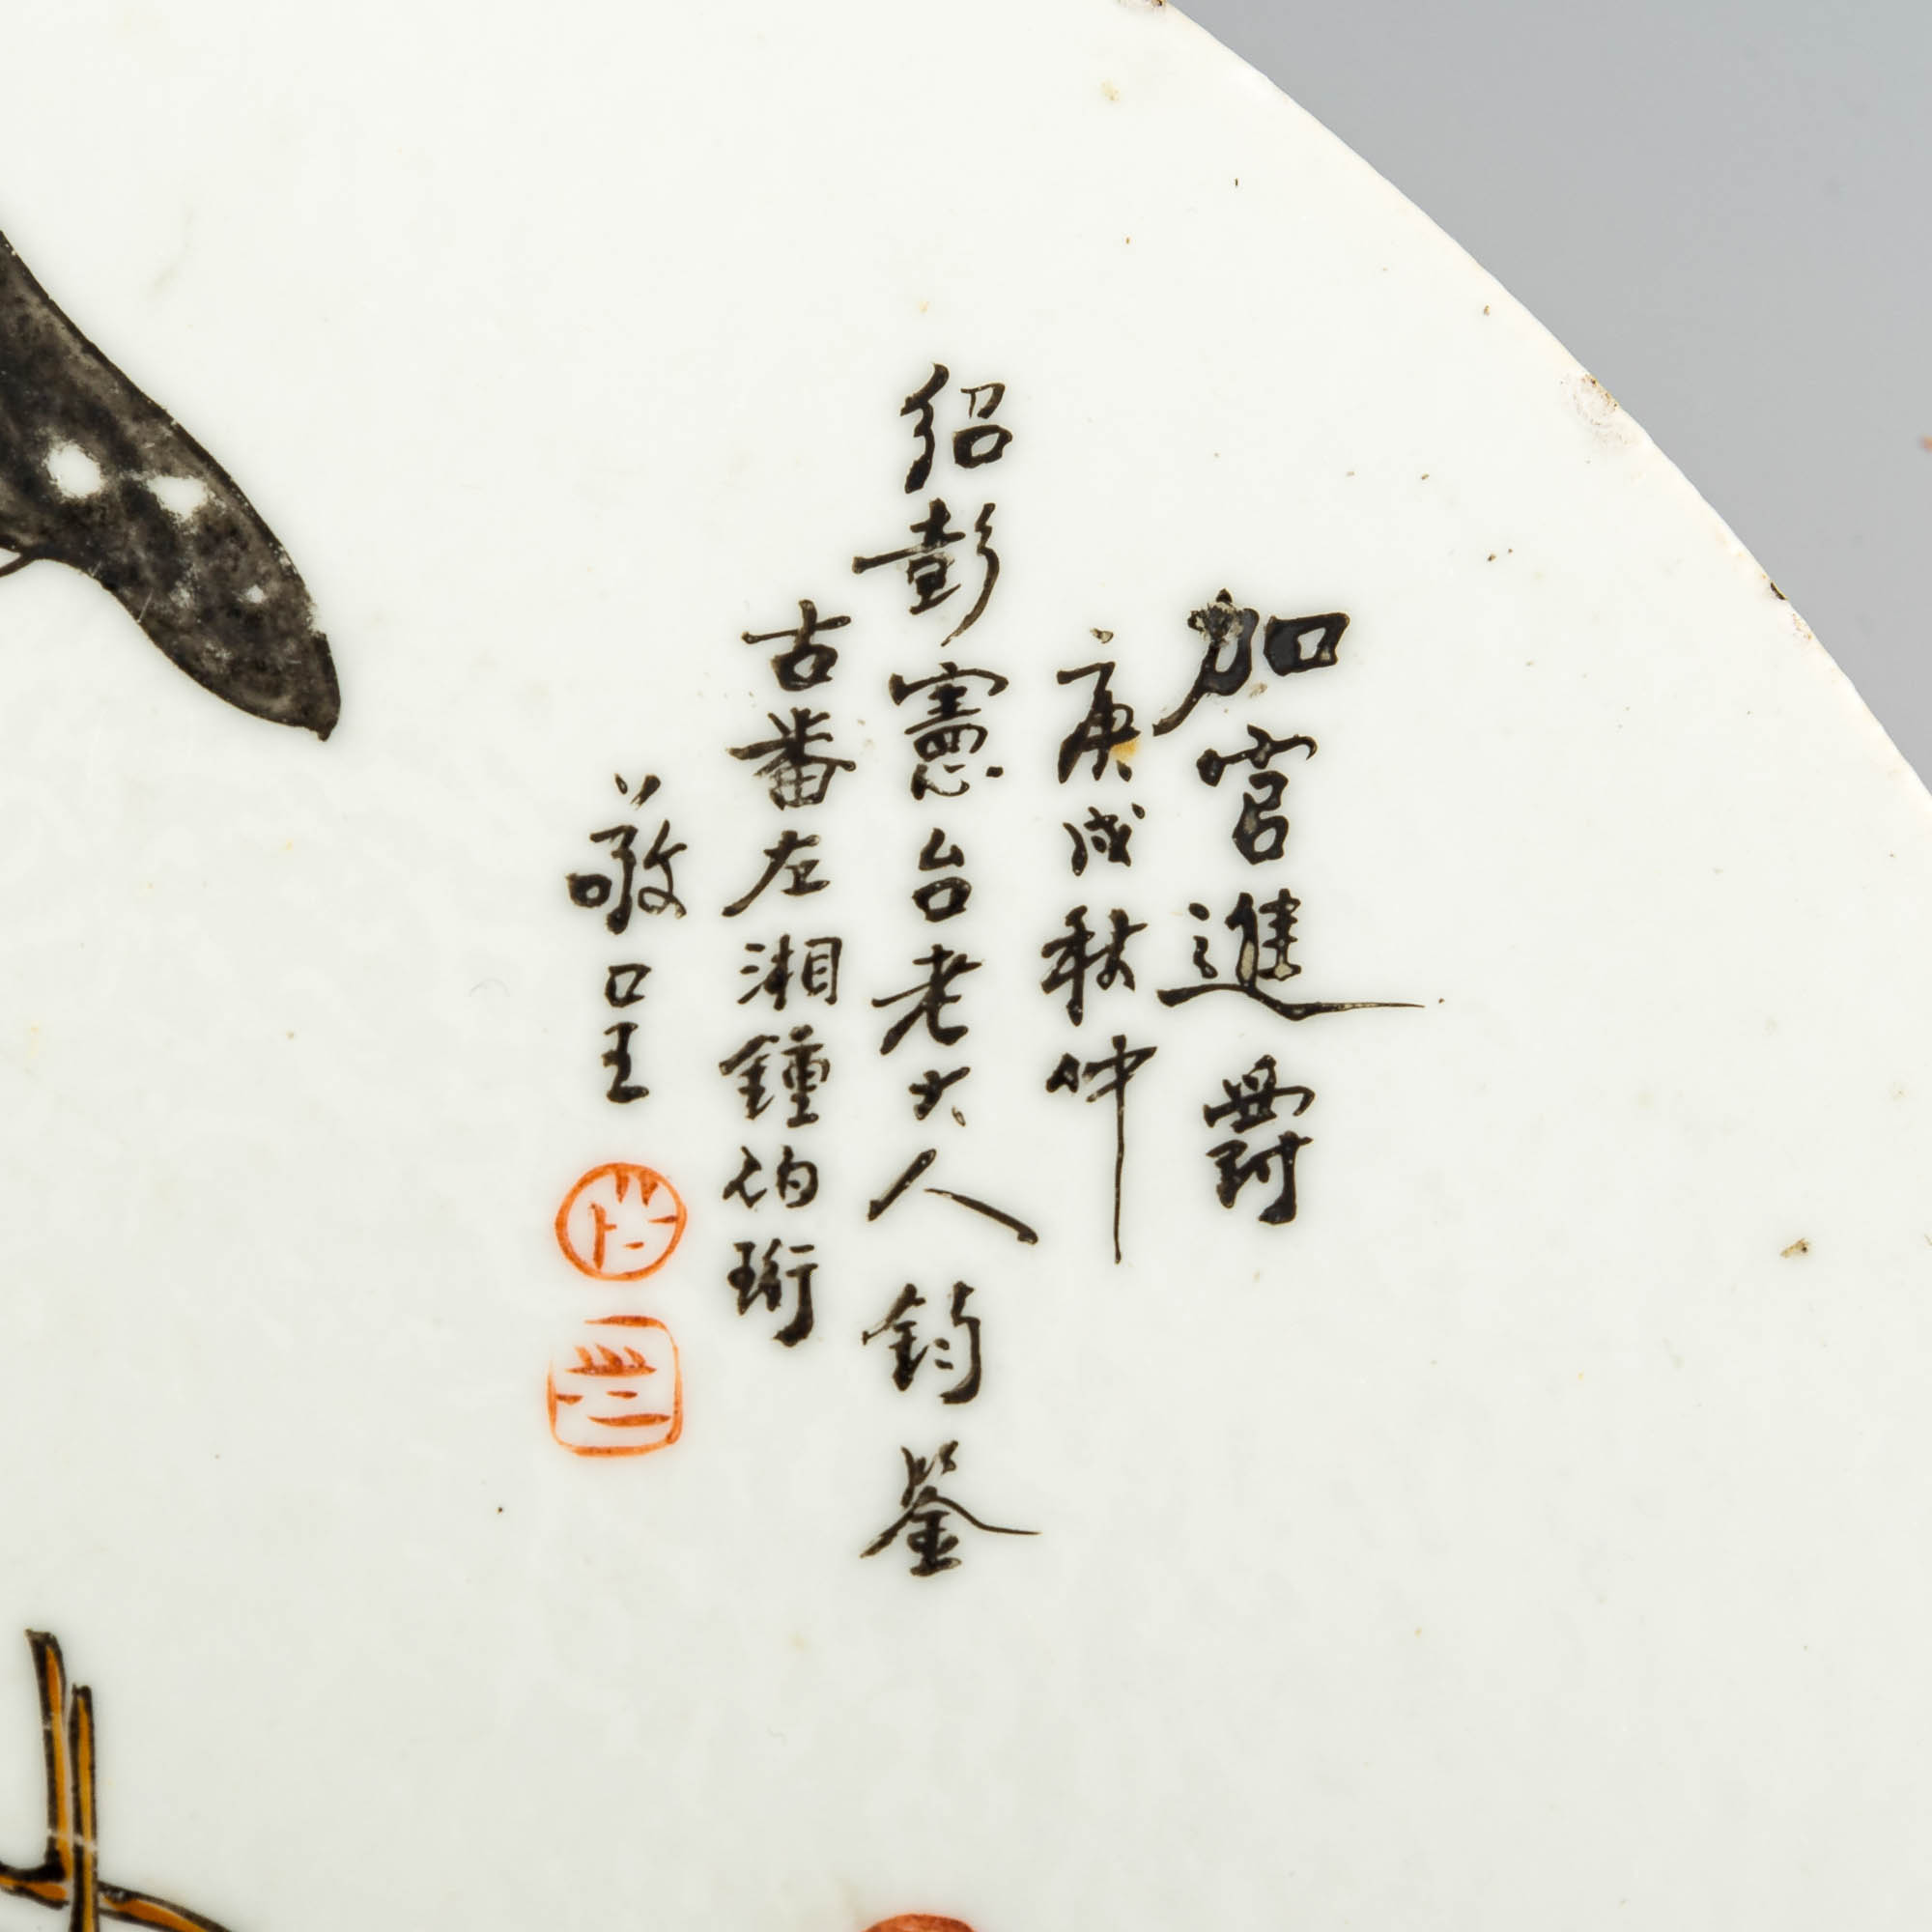 加官進爵
庚戌秋仲
紹彭憲台老大人鈞鑒
古番左湘鍾伯珩
敬呈